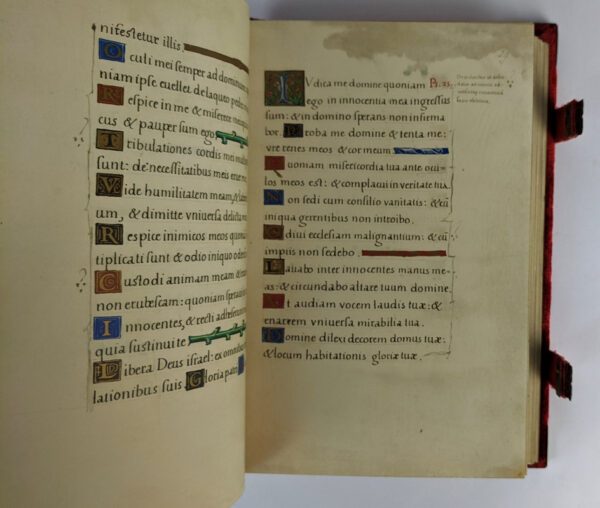 nifestetur illis.
Oculi mei semper ad dominum
niam ipse euellet de laqueo pedes
Respice in me & miserere mei
cus & pauper sum ego
Tribulationes cordis mei mul
sunt: de necessitatibus meis
Vide humilitatem meam, & labo
um, & dimitte vniuersa delicta
Respice inimicos meos quon
tiplicati sunt & odio iniquo oder
Custodi animam meam &
non erubescam: quoniam speraui
Innocentes, & recti adheserunt
quia sustinui te
Libera Deus israel: ex omnibus
lationibus suis. Gloria patri
IVdica me domine quoniam Ps.
ego in innocentia mea ingressus
sum: & in domino sperans non infirma
bor. Proba me domine & tenta me:
vre renes meos & cor meum.
Quoniam misericordia tua ante ocu
los meos est: & complacui in veritate tua.
Non sedi cum consilio vanitatis: & cū
iniqua gerentibus non introibo.
Odiui ecclesiam malignantium: & cū
impiis non sedebo.
Lauabo inter innocentes manus me
as: & circundabo altare tuum domine.
Vt audiam vocem laudis tuæ: &
enarrem vniuersa mirabilia tua.
Domine dilexi decorem domus tuæ:
& locum habitationis gloriæ tuæ.